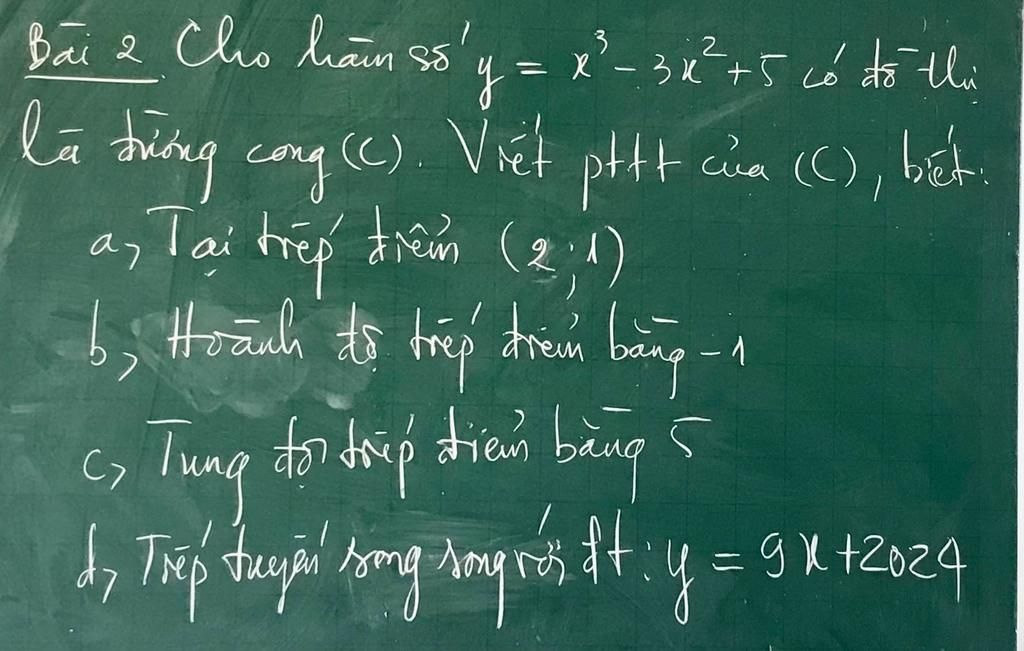 Bài 2 Cho hàm số y = x³ - 3x² + 5 có đồ thị
là đường cong (C). Viết pttt của (C), biết:
a, Tại tiếp điểm (2;1)
b, Hoành độ tiếp điểm bằng -1
c, Tung độ tiếp điểm bằng 5
d, Tiếp tuyến song song với đt: y = 9x+2024